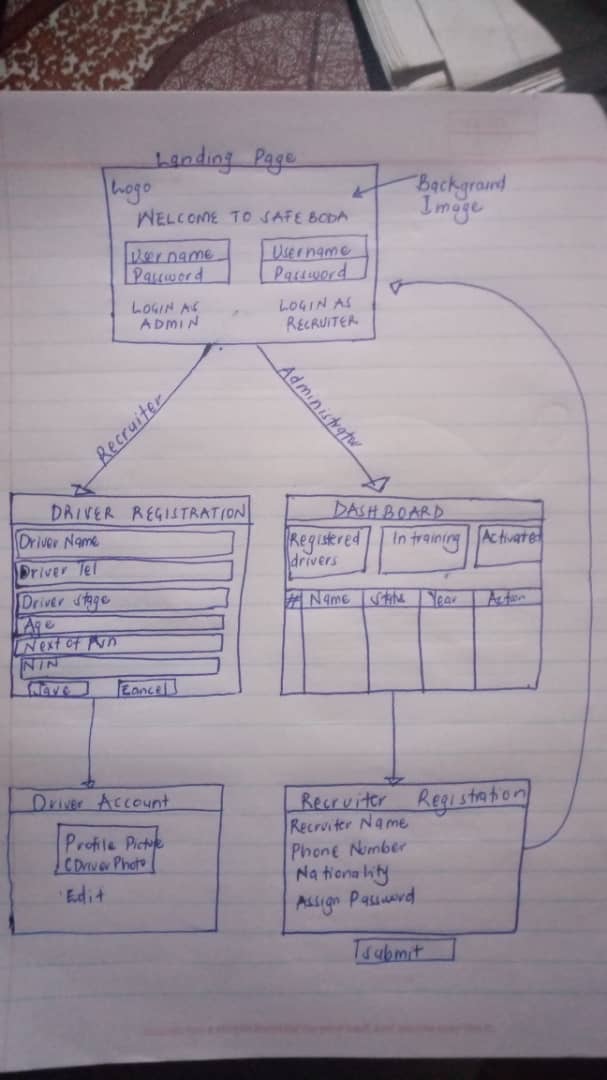 Landing Page
Logo
Background
Image
WELCOME TO SAFE BODA
Username
Password
Username
Password
LOGIN AS
ADMIN
LOGIN AS
RECRUITER
Recruiter
Administrator
DRIVER REGISTRATION
Driver Name
Driver Tel
Driver Stage
Age
Next of Kin
NIN
Save
Cancel
DASHBOARD
Registered
drivers
In training
Activated
# Name Status Year Action
Driver Account
Profile Picture
(Driver Photo)
Edit
Recruiter Registration
Recruiter Name
Phone Number
Nationality
Assign Password
Submit